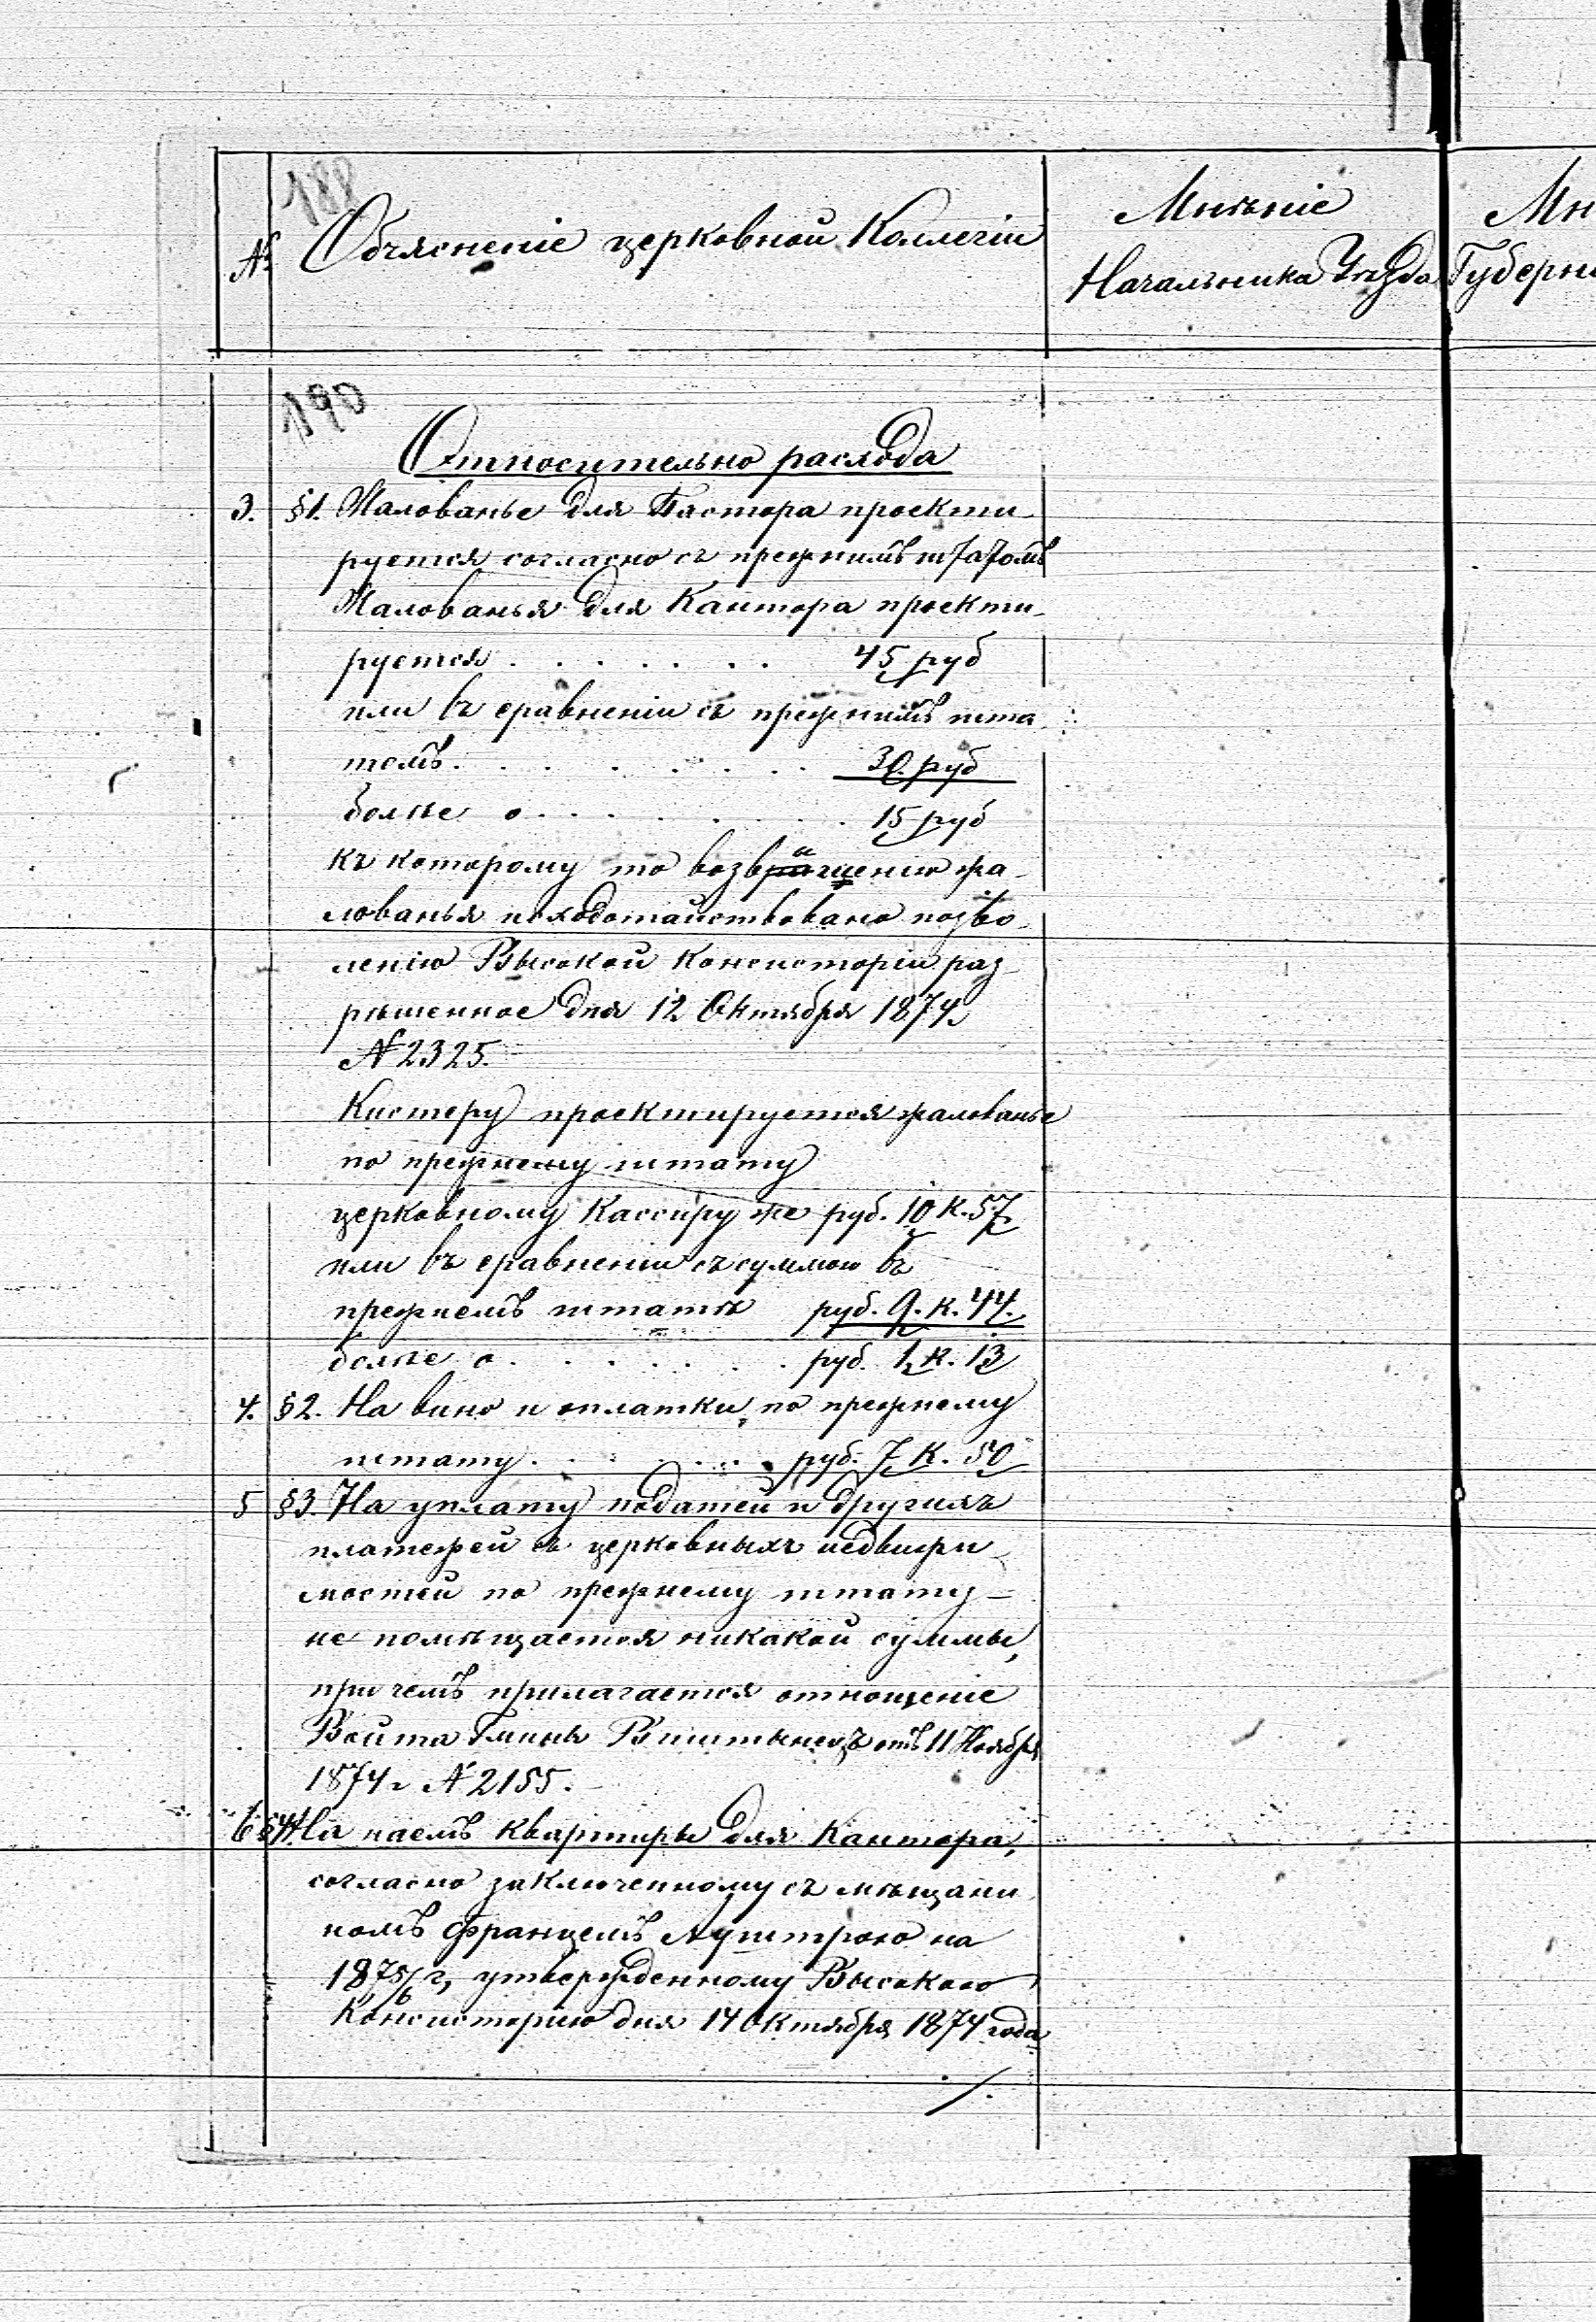 188
№
Объясненіе церковной Коллегіи
Мнѣніе
Начальника Уѣзда
Мн
Губерн
190
Относительно расхода
3. §1. Жалованье для Пастора проекти-
руется согласно съ прежнимъ штатомъ
Жалованья для Кантора проекти-
руется . . . . . . . 45 руб
или въ сравненіи съ прежнимъ шта
томъ . . . . . . . . 30 руб
болѣе о . . . . . . . . 15 руб
къ которому то возвышенію жа-
лованья исходотайствовано позво-
ленію Высокой Консисторіи раз-
рѣшенное дня 12 Октября 1874
№ 2325.
Кистеру проектируется жалованье
по прежнему штату
церковному Кассиру же руб. 10 к. 57
или въ сравненіи съ суммою въ
прежнемъ штатѣ руб. 9. к. 44.
болѣе о . . . . . . . руб. 1 к. 13
4. §2. На вино и оплатки, по прежнему
штату . . . . . руб. 7 к. 50
5 §3. На уплату податей и другихъ
платежей съ церковныхъ недвижи-
мостей по прежнему штату -
не помѣщается никакой суммы,
при чемъ прилагается отношеніе
Войта Гмины Виштынецъ отъ 11 Ноября
1874 г № 2155.
6 §4 На наемъ квартиры для Кантора,
согласно заключенному съ мѣщани
номъ Францемъ на
1875/6 г, утвержденному Высокою
Консисторіею дня 14 Октября 1874 года
./.